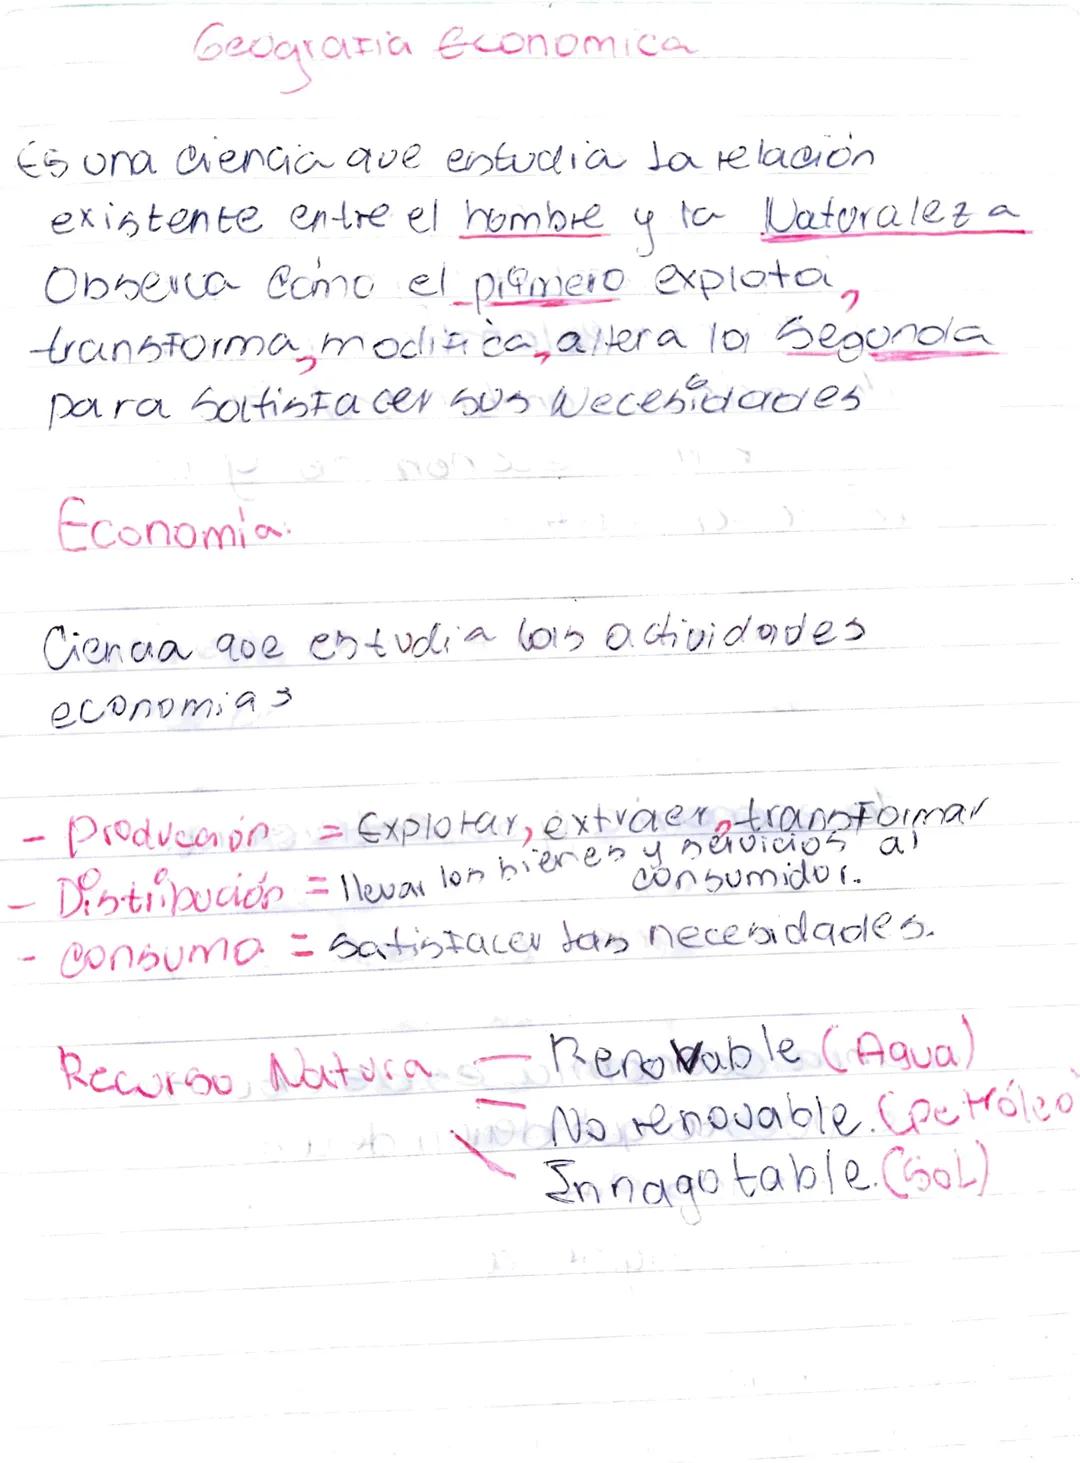 Geografia Economica
Es una ciencia que estudia la relación
existente entre el hombre y la Naturaleza
Observa como el primero explota,
transforma, modifica, altera la Segunda
para satisfacer sus Necesidades
Economía.
Ciencia que estudia las actividades
economias
- Producción = Explotar, extraer, transformar
- Distribución = llevar los bienes y servicios al
consumidor.
- consumo = satisfacer las necesidades.
Recurso Natura — Renovable (Agua)
— No renovable. (petróleo)
\ Innagotable. (SoL)